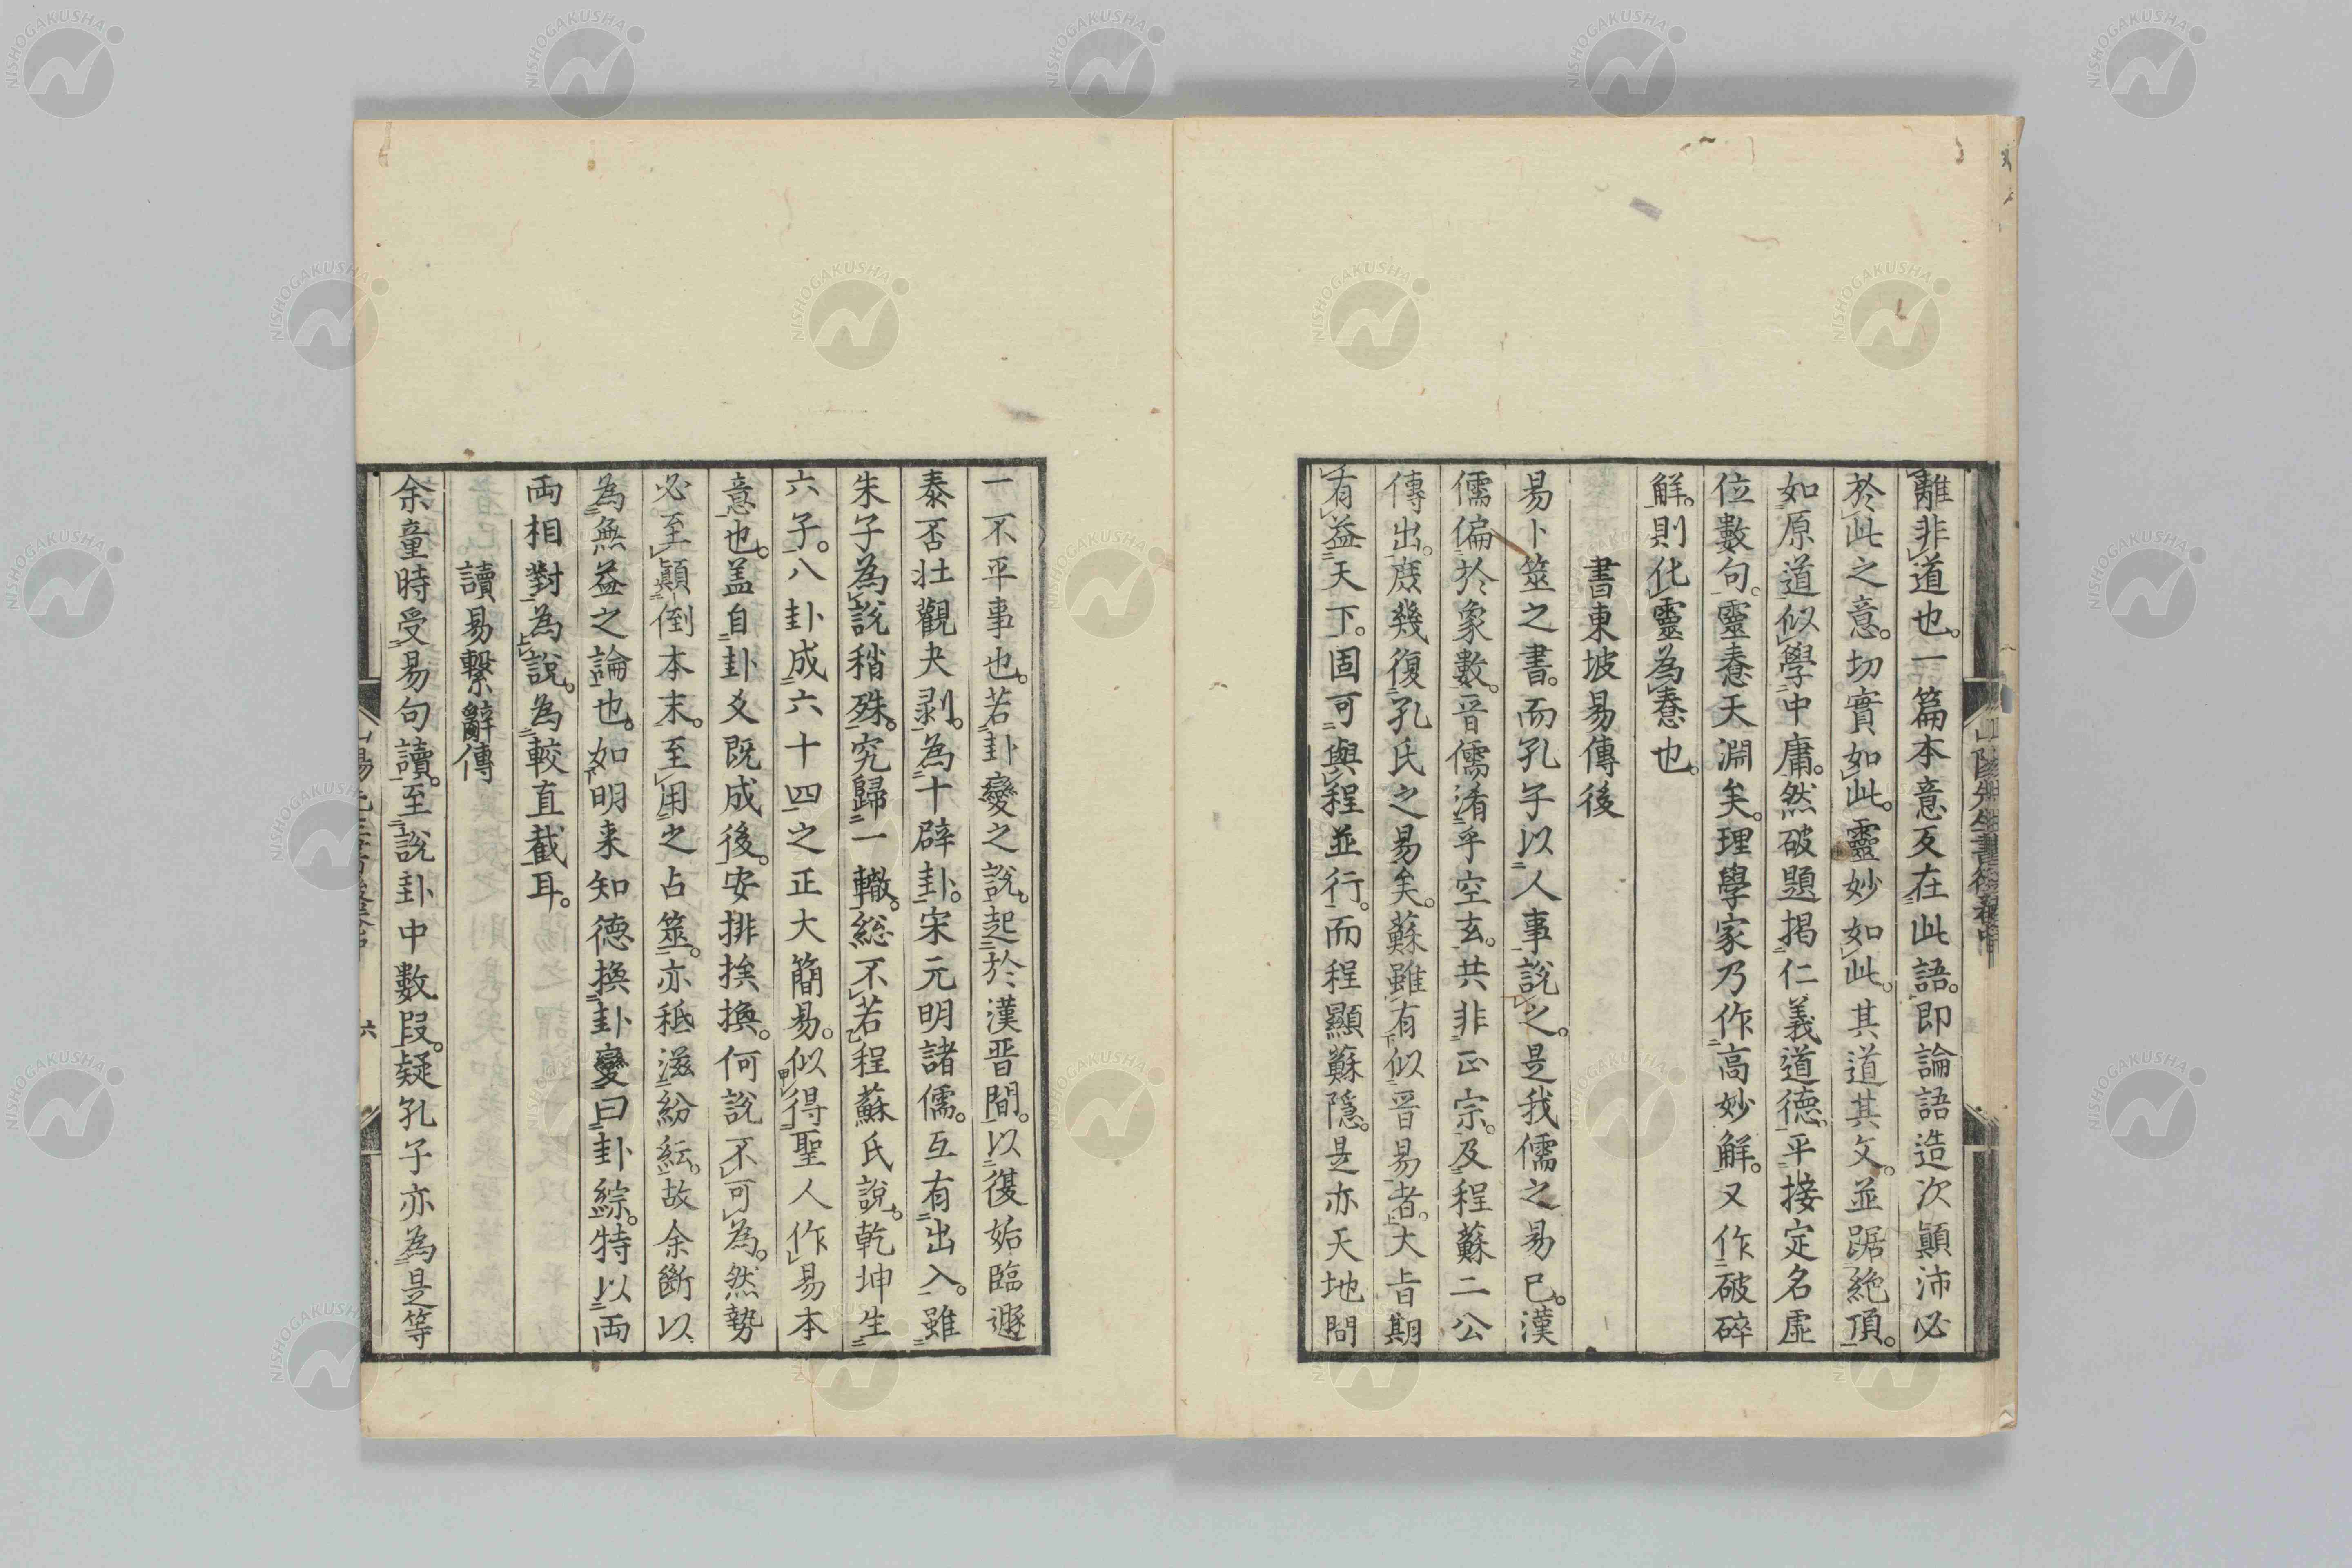 離非道也。一篇本意亙在此語。即論語造次顛沛必
於此之意。切實如此。靈妙如此。其道其文。並踞絶頂。
如原道似學中庸。然破題揭仁義道德。平接定名虛
位數句。靈惷天淵矣。理學家乃作高妙解。又作破碎
解。則化靈為惷也。
書東坡易傳後
易卜筮之書。而孔子以人事說之。是我儒之易已。漢
儒偏於象數。晋儒淆乎空玄。共非正宗。及程蘇二公
傳出。庶幾復孔氏之易矣。蘇雖有似晋易者。大旨期
有益天下。固可與程並行。而程顯蘇隱。是亦天地間
一不平事也。若卦變之說。起於漢晋間。以復姤臨遯
泰否壯觀夬剥。為十辟卦。宋元明諸儒。互有出入。雖
朱子為說稍殊。究歸一轍。総不若程蘇氏說。乾坤生
六子。八卦成六十四之正大簡易。似得聖人作易本
意也。盖自卦爻既成後。安排挨換。何說不可為。然勢
必至顛倒本末。至用之占筮。亦秪滋紛紜。故余斷以
為無益之論也。如明来知德換卦變曰卦綜。特以両
両相對為說。為較直截耳。
讀易繫辭傳
余童時受易句讀。至說卦中數段。疑孔子亦為是等
山陽先生書後卷中
六
NISHOGAKUSHA